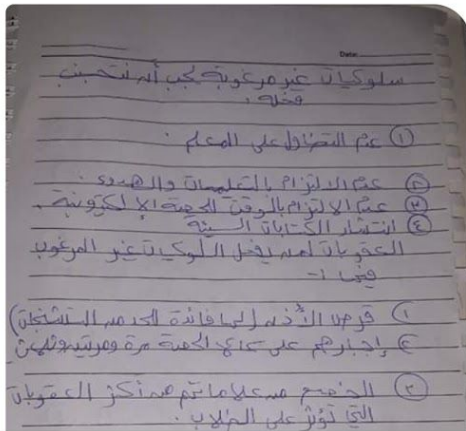 Date:
سلوكيات غير مرغوبة يجب أن نتجنب
فعله .
① عدم التطاول على المعلم .
② عدم الالتزام بالتعليمات والهدوء .
③ عدم الالتزام بالوقت للحصة الإلكترونية .
④ انتشار الكتابات السيئة
العقوبات لمن يفعل السلوكيات غير المرغوب
فيها :-
① قرص الأذن (لها فائدة للحد من التشنجات)
② إجبارهم على الحصة مرة ومرتين وثلاث
③ الخصم من علاماتهم من أكثر العقوبات
التي تؤثر على الطلاب .